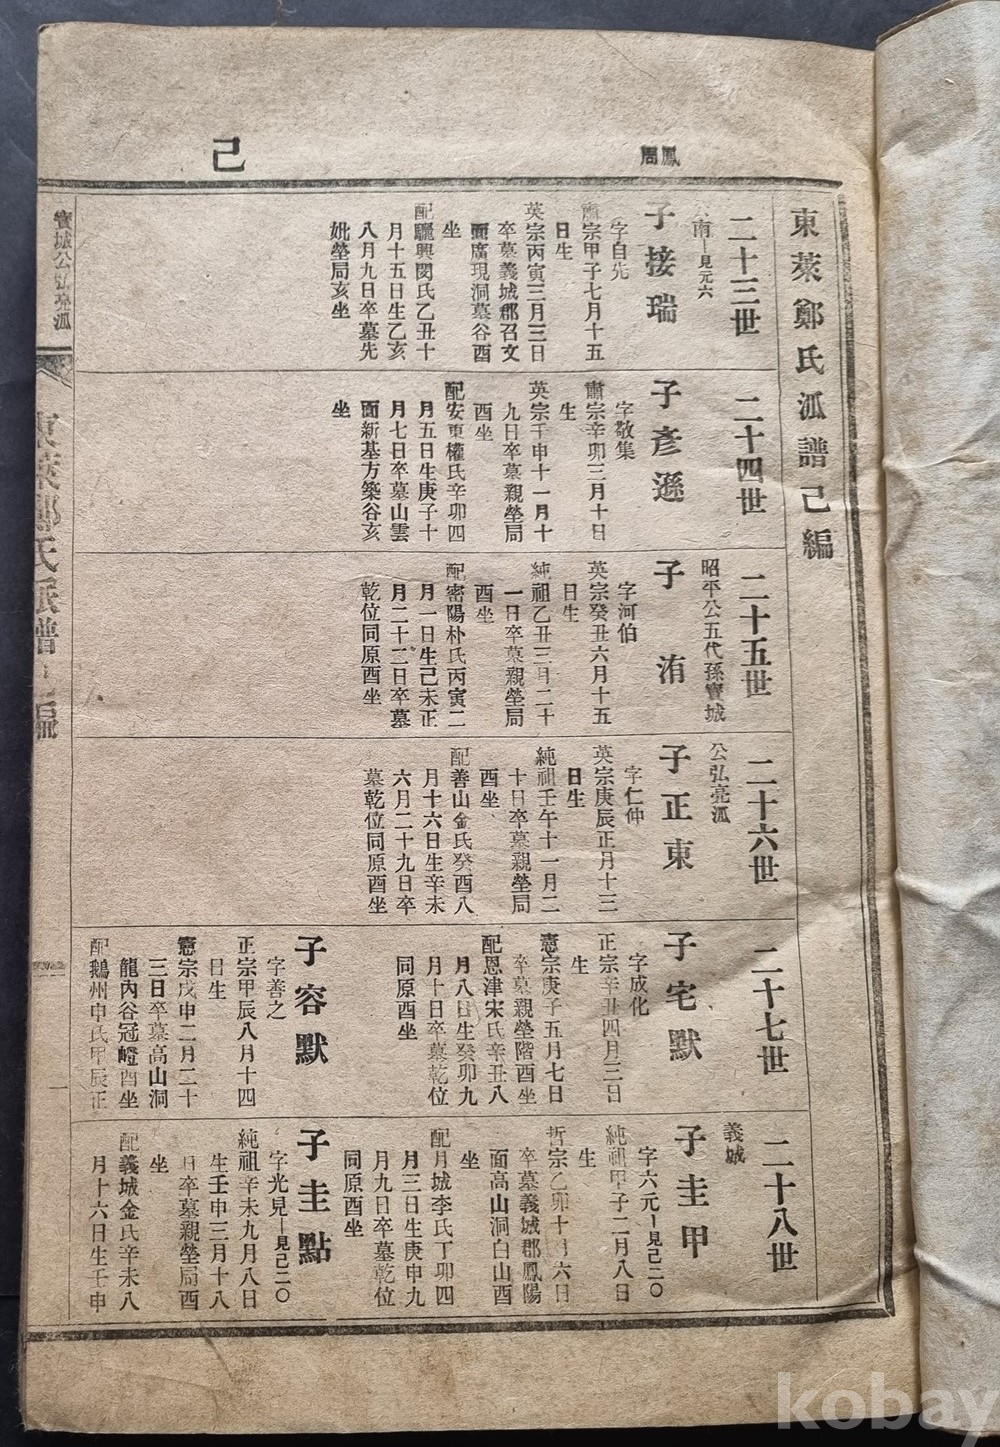 己
鳳
周
東萊鄭氏派譜己編
二十三世
南ー見元六
子接瑞
字自先
肅宗甲子七月十五
日生
英宗丙寅三月三日
卒墓義城郡召文
面廣現洞墓谷酉
坐
配驪興閔氏乙丑十
月十五日生乙亥
八月九日卒墓先
妣塋局亥坐
二十四世
子彥遜
字敬集
肅宗辛卯三月十日
生
英宗壬申十一月十
九日卒墓親塋局
酉坐
配安東權氏辛卯四
月五日生庚子十
月七日卒墓山雲
面新基方築谷亥
坐
二十五世
昭平公五代孫寶城
子 洧
字河伯
英宗癸丑六月十五
日生
純祖乙丑三月二十
一日卒墓親塋局
酉坐
配密陽朴氏丙寅二
月一日生己未正
月二十二日卒墓
乾位同原酉坐
二十六世
公弘亮派
子正東
字仁仲
英宗庚辰正月十三
日生
純祖壬午十一月二
十日卒墓親塋局
酉坐
配善山金氏癸酉八
月十六日生辛未
六月二十九日卒
墓乾位同原酉坐
二十七世
子宅默
字成化
正宗辛丑四月三日
生
憲宗庚子五月七日
卒墓親塋階酉坐
配恩津宋氏辛丑八
月八日生癸卯九
月十日卒墓乾位
同原酉坐
子容默
字善之
正宗甲辰八月十四
日生
憲宗戊申二月二十
三日卒墓高山洞
龍內谷冠嶝酉坐
配鵝州申氏甲辰正
二十八世
義城
子圭甲
字六元ー見己二〇
純祖甲子二月八日
生
哲宗乙卯十月六日
卒墓義城郡鳳陽
面高山洞白山酉
坐
配月城李氏丁卯四
月三日生庚申九
月九日卒墓乾位
同原酉坐
子圭點
字光見ー見己二〇
純祖辛未九月八日
生壬申三月十八
日卒墓親塋局酉
坐
配義城金氏辛未八
月十六日生壬申
寶城公弘亮派
東萊鄭氏派譜 編
一
kobay